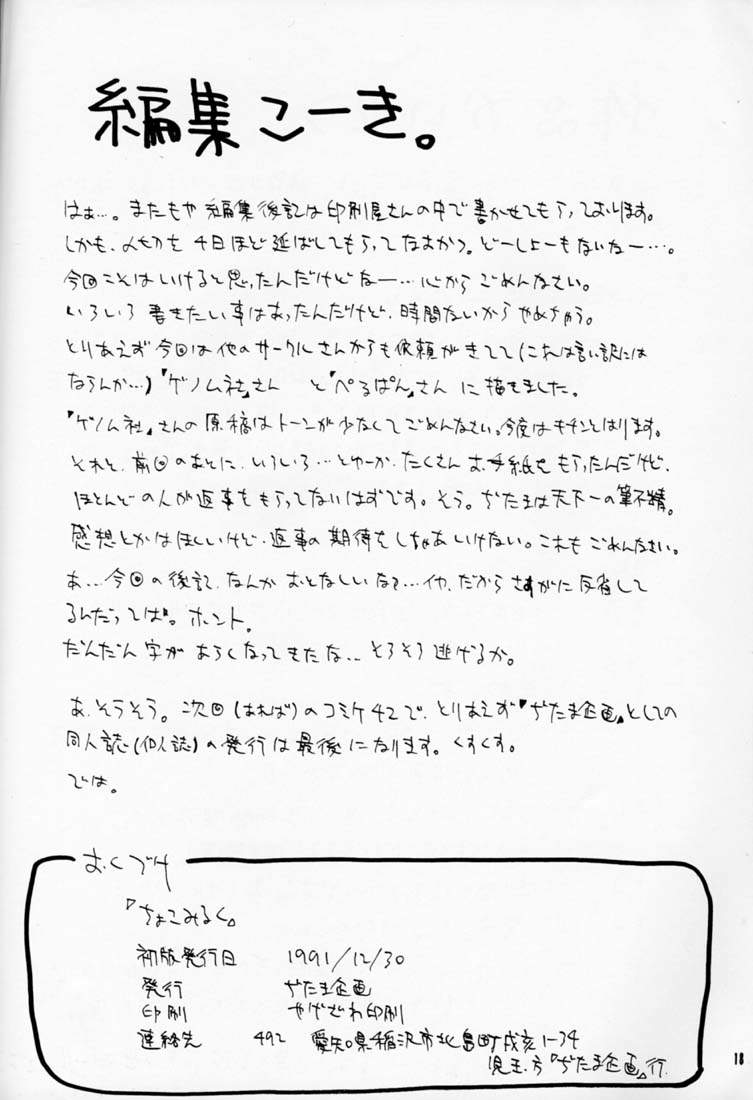 編集こーき。
はぁ…。またもや編集後記は印刷屋さんの中で書かせてもらっております。
しかも、〆切を4日ほど延ばしてもらってなおかつ。どーしょーもないなー…。
今回こそはいけると思ったんだけどなー…心からごめんなさい。
いろいろ書きたい事はあったんだけど、時間ないからやめちゃう。
とりあえず今回は他のサークルさんからも依頼がきてて(これは言い訳には
ならんか…)『ゲノム社』さん と『ぺるぱん』さん に描きました。
『ゲノム社』さんの原稿はトーンが少なくてごめんなさい。今度はキチンとはります。
それと、前回のあとに、いろいろ…とゆーか、たくさんお手紙をもらったんだけど、
ほとんどの人が返事をもらってないはずです。そう。ぢたまは天下一の筆不精。
感想とかはほしいけど、返事の期待をしちゃあいけない。これもごめんなさい。
あ…今回の後記、なんかおとなしいなて…イヤ、だからさすがに反省して
るんだってば。ホント。
だんだん字があらくなってきたな… そろそろ逃げるか。
あ、そうそう。次回(はれば)のコミケ42で、とりあえず『ぢたま企画』としての
同人誌(個人誌)の発行は最後になります。くすくす。
では。
おくづけ
『ちょこみるく』
初版発行日 1991/12/30
発行 ぢたま企画
印刷 やげざわ印刷
連絡先 492 愛知県稲沢市北島町戌亥1-34
児玉方『ぢたま企画』行
18